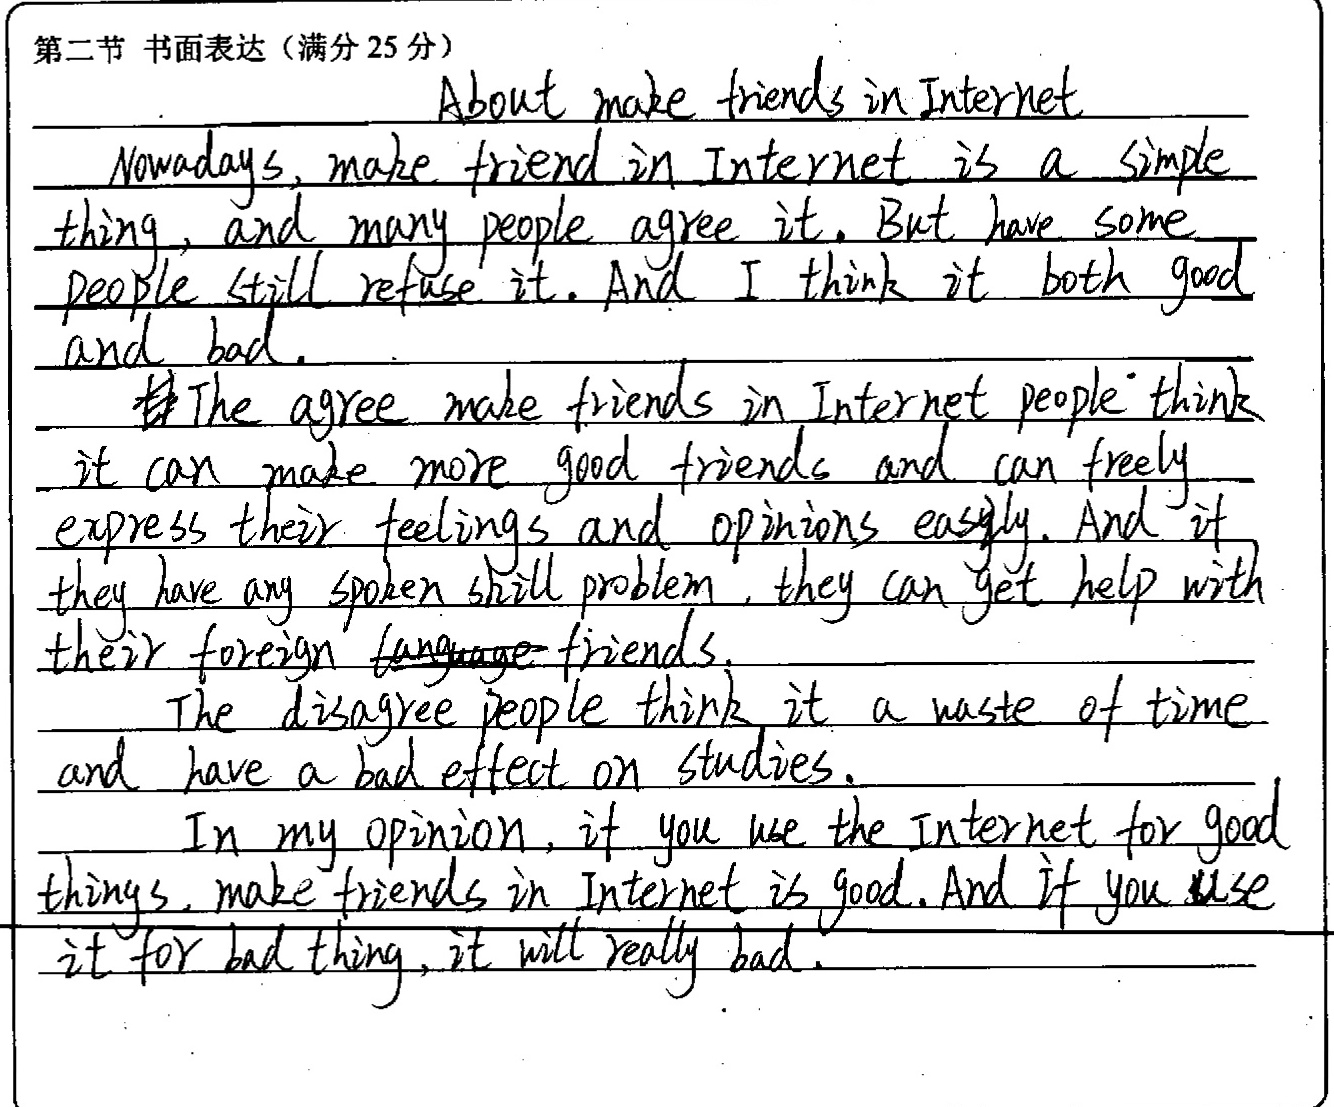 第二节 书面表达（满分 25 分）
About make friends in Internet
Nowadays, make friend in Internet is a simple
thing, and many people agree it. But have some
people still refuse it. And I think it both good
and bad.
The agree make friends in Internet people think
it can make more good friends and can freely
express their feelings and opinions easily. And if
they have any spoken skill problem, they can get help with
their foreign language friends.
The disagree people think it a waste of time
and have a bad effect on studies.
In my opinion, if you use the Internet for good
things, make friends in Internet is good. And if you use
it for bad thing, it will really bad.